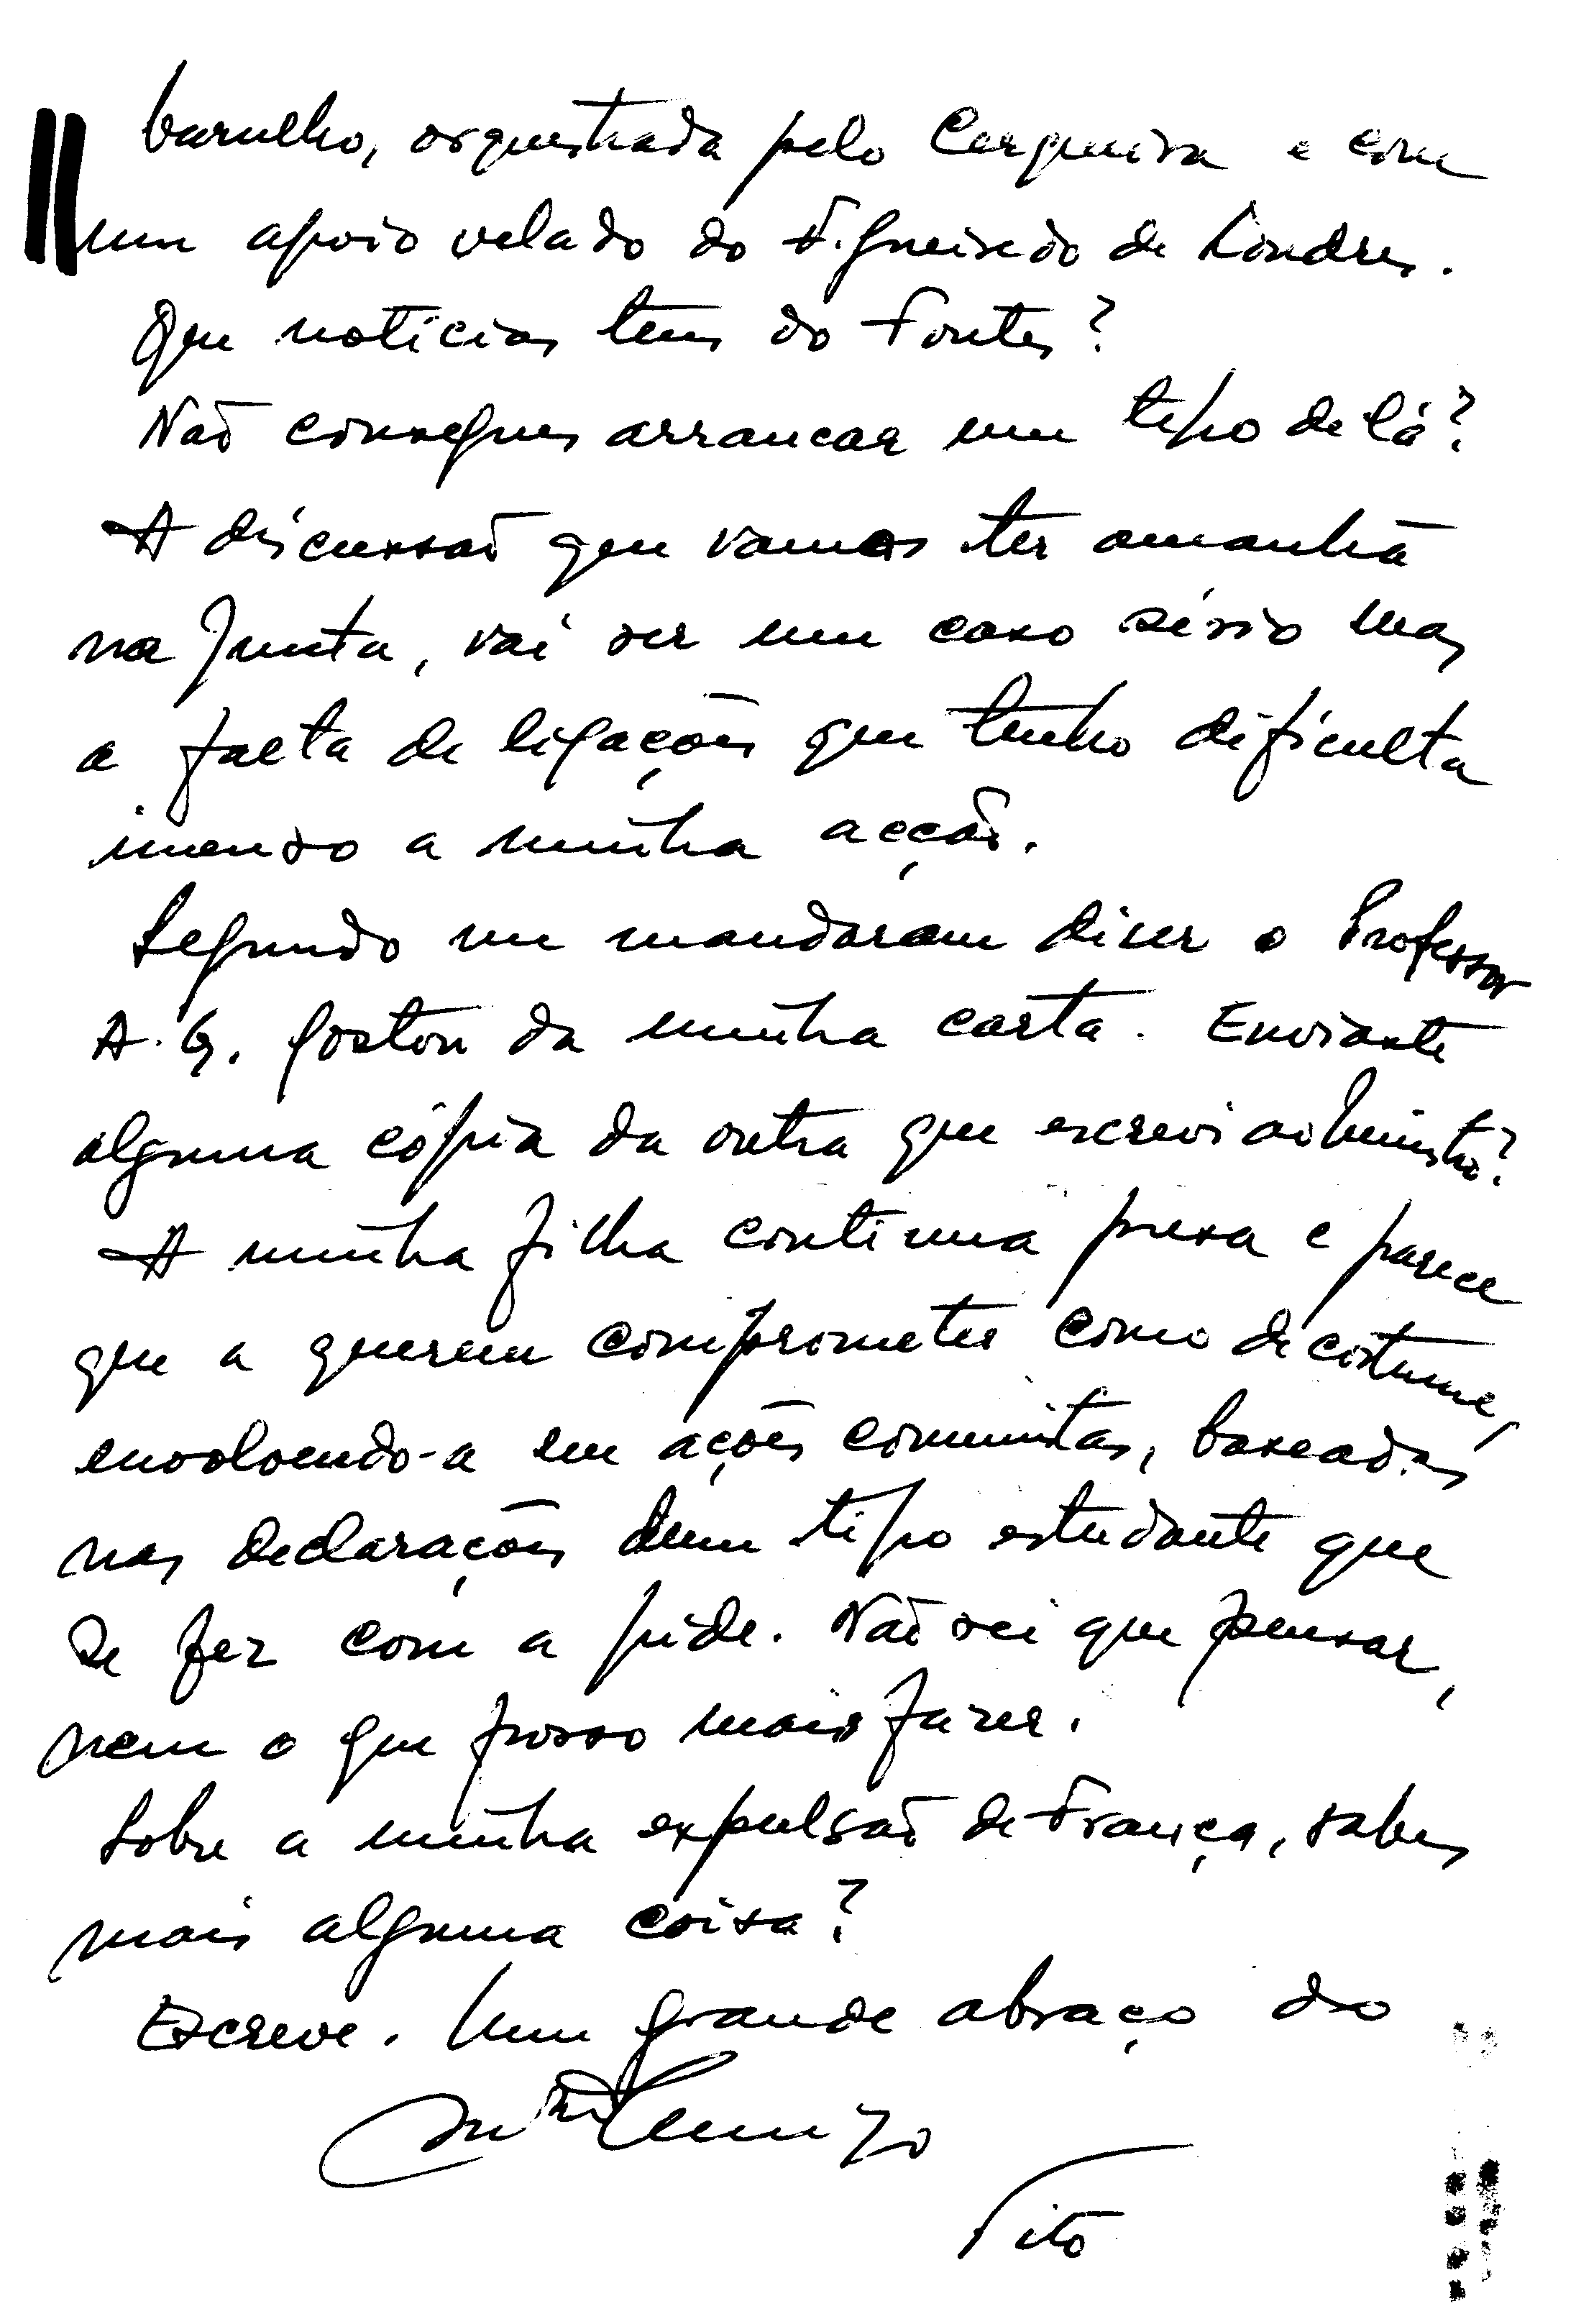 barulho, orquestrada pelo Cerqueira e com
um apoio velado do Figueiredo de Londres.
Que noticias tens do Fontes?
Não consegues arrancar um tipo de lá?
A discussão que vamos ter amanhã
na Junta, vai ser um caso sério mas
a falta de ligações que tenho dificulta
imenso a minha acção.
Segundo me mandaram dizer o Professor
A. G. gostou da minha carta. Enviaste
alguma cópia da outra que escrevi ao Ministro?
A minha filha continua presa e parece
que a querem comprometer como de costume,
envolvendo-a em ações comunistas, baseados
nas declarações dum tipo estudante que
se fez com a pide. Não sei que pensar,
nem o que posso mais fazer.
Sobre a minha expulsão de França, sabes
mais alguma coisa?
Escreve. Um grande abraço do
amigo
Tito